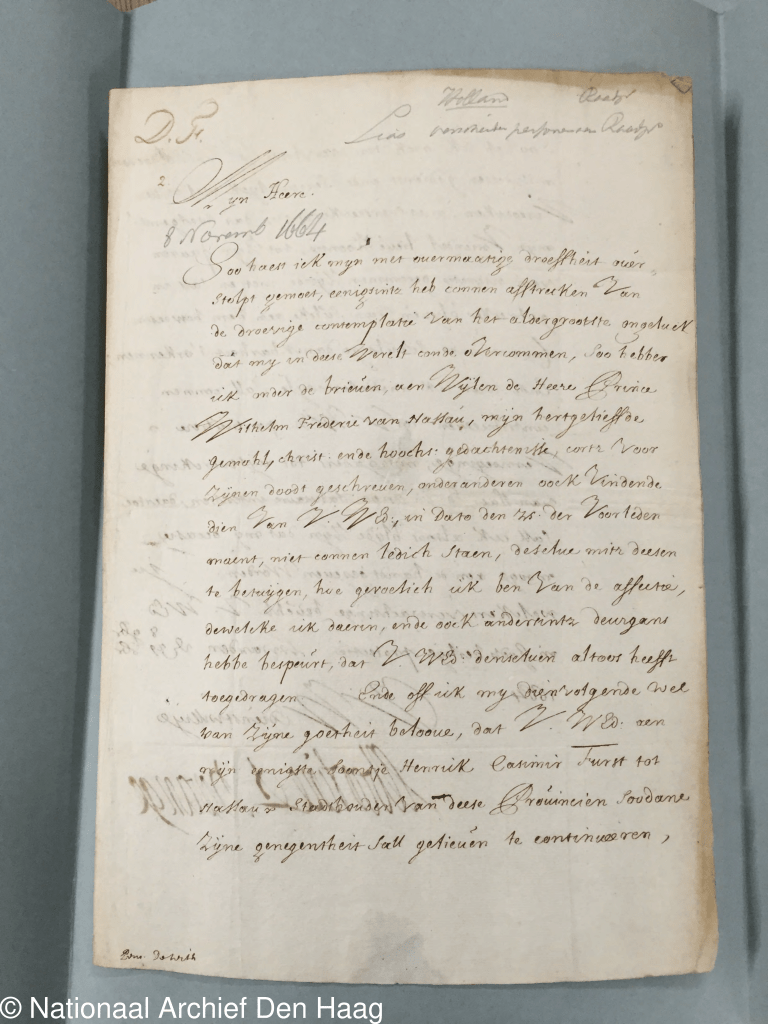 Holland Raadp.
D. Fr. Lias verscheiden personen aen Raadp.
2
Mijn Heere.
8 Novemb 1664
Soo haest ick mijn met overmaatige droeffheit över„
stolpt gemoet, eenigsintz heb connen afftrecken Van
de droevige contemplatie van het aldergrootste ongeluck
dat my in deese Werelt conde overcommen, Soo hebbe
ick onder de brieven, aen Wijlen de Heere Prince
Wilhelm Frederic van Nassau, mijn hertgelieffde
gemahl, christ: ende hoochs: gedachtenisse, cortz voor
Zijnen doodt geschreven, onderanderen oock Vindende
dien Van V. WEd:, in Dato den 25: der Voorleden
maent, niet connen ledich staen, deselve mitz deesen
te betuijgen, hoe gevoelich ick ben Van de affectie,
dewelcke ick daerin, ende oock andersintz deurgans
hebbe bespeurt, dat V. WEd: denselven altoos heefft
toegedragen. Ende off ick my dienvolgende wel
van Zijne goetheit beloove, dat V. WEd: aen
mijn eenigste Soontje Henrick Casimir Furst tot
Nassau Stadthouder Van deese Provincien Soodane
Zijne genegentheit Sall gelieven te continueeren,
Pens. de With
© Nationaal Archief Den Haag